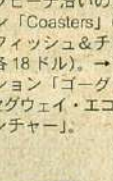 ノビーチ沿いの
ン「Coasters」
フィッシュ&チ
各18ドル)。→
ション「ゴーグ
グウェイ・エコ
ンチャー」。